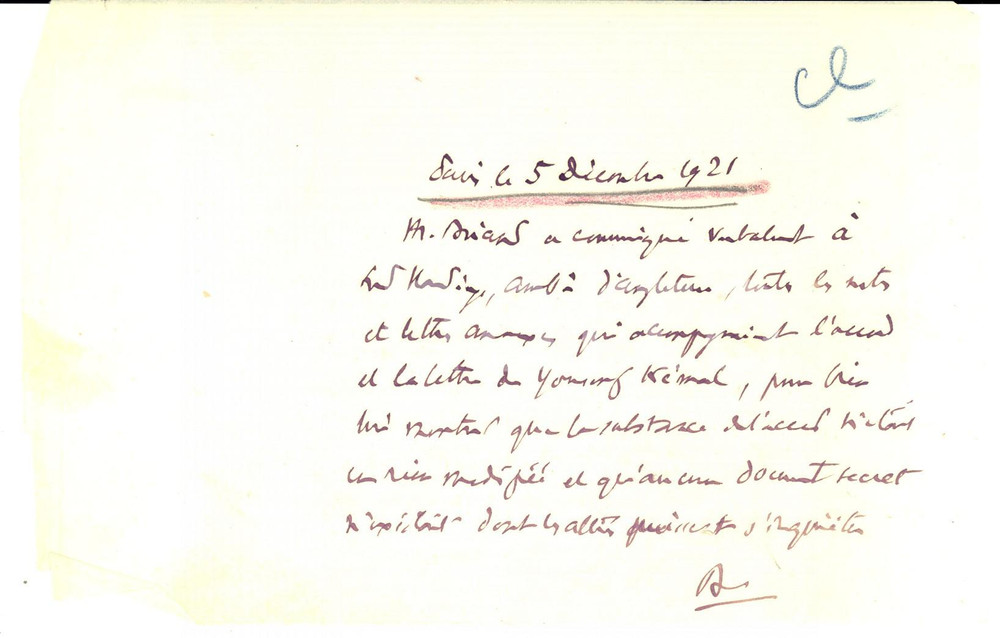 Paris le 5 Décembre 1921
M. Briand a communiqué verbalement à
Lord Hardinge, ambr d'Angleterre, toutes les notes
et lettres annexes qui accompagnaient l'accord
et la lettre de Youssouf Kémal, pour bien
lui montrer que la substance de l'accord n'était
en rien modifiée et qu'aucun document secret
n'existait dont les alliés puissent s'inquiéter
B.